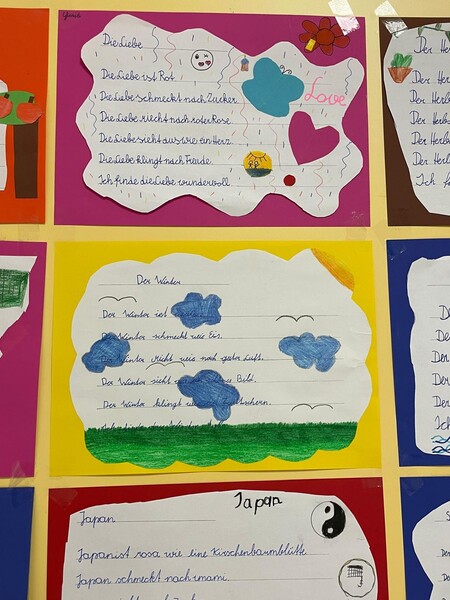 Die Liebe
Die Liebe ist Rot.
Die Liebe schmeckt nach Zucker.
Die Liebe riecht nach roter Rose.
Die Liebe sieht aus wie ein Herz.
Die Liebe klingt nach Freude.
Ich finde die Liebe wundervoll
Love
Der Her
Der Herb
Der Herbs
Der Herb
Der Herb
Der Herb
Ich fa
Der Winter
Der Winter ist
Winter schmeckt wie Eis.
Winter riecht wie nach guter Luft.
Der Winter sieht Bild.
Der Winter klingt
De
Der
Der
Der
Der
Ich
Japan
Japan
Japan ist rosa wie eine Kirschenbaumblütte
Japan schmeckt nach umami.